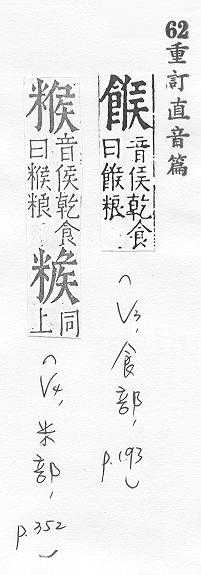 62重訂直音篇
餱音侯乾食曰餱粮
(V3,食部,p.193)
糇音侯乾食曰糇粮糇同上
(V4,米部,p.352)